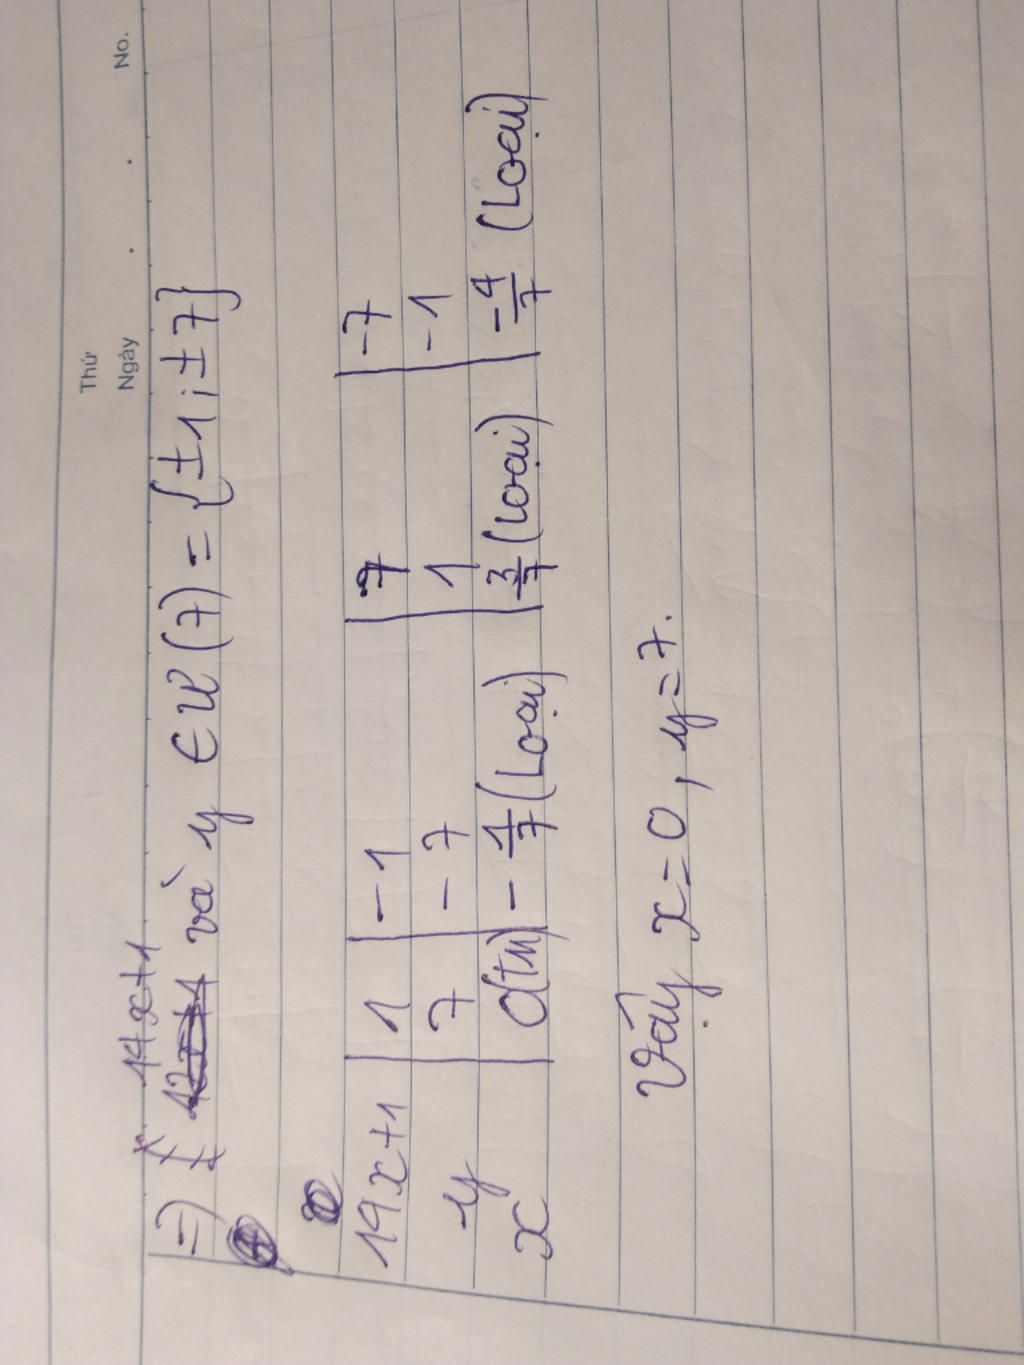 Thứ
Ngày . . No.
14x+1
=> và y ∈ Ư(7) = {±1; ±7}
14x+1 | 1 | -1 | 7 | -7
y | 7 | -7 | 1 | -1
x | 0(tm) | -1/7 (Loại) | 3/7 (Loại) | -4/7 (Loại)
Vậy x=0, y=7.